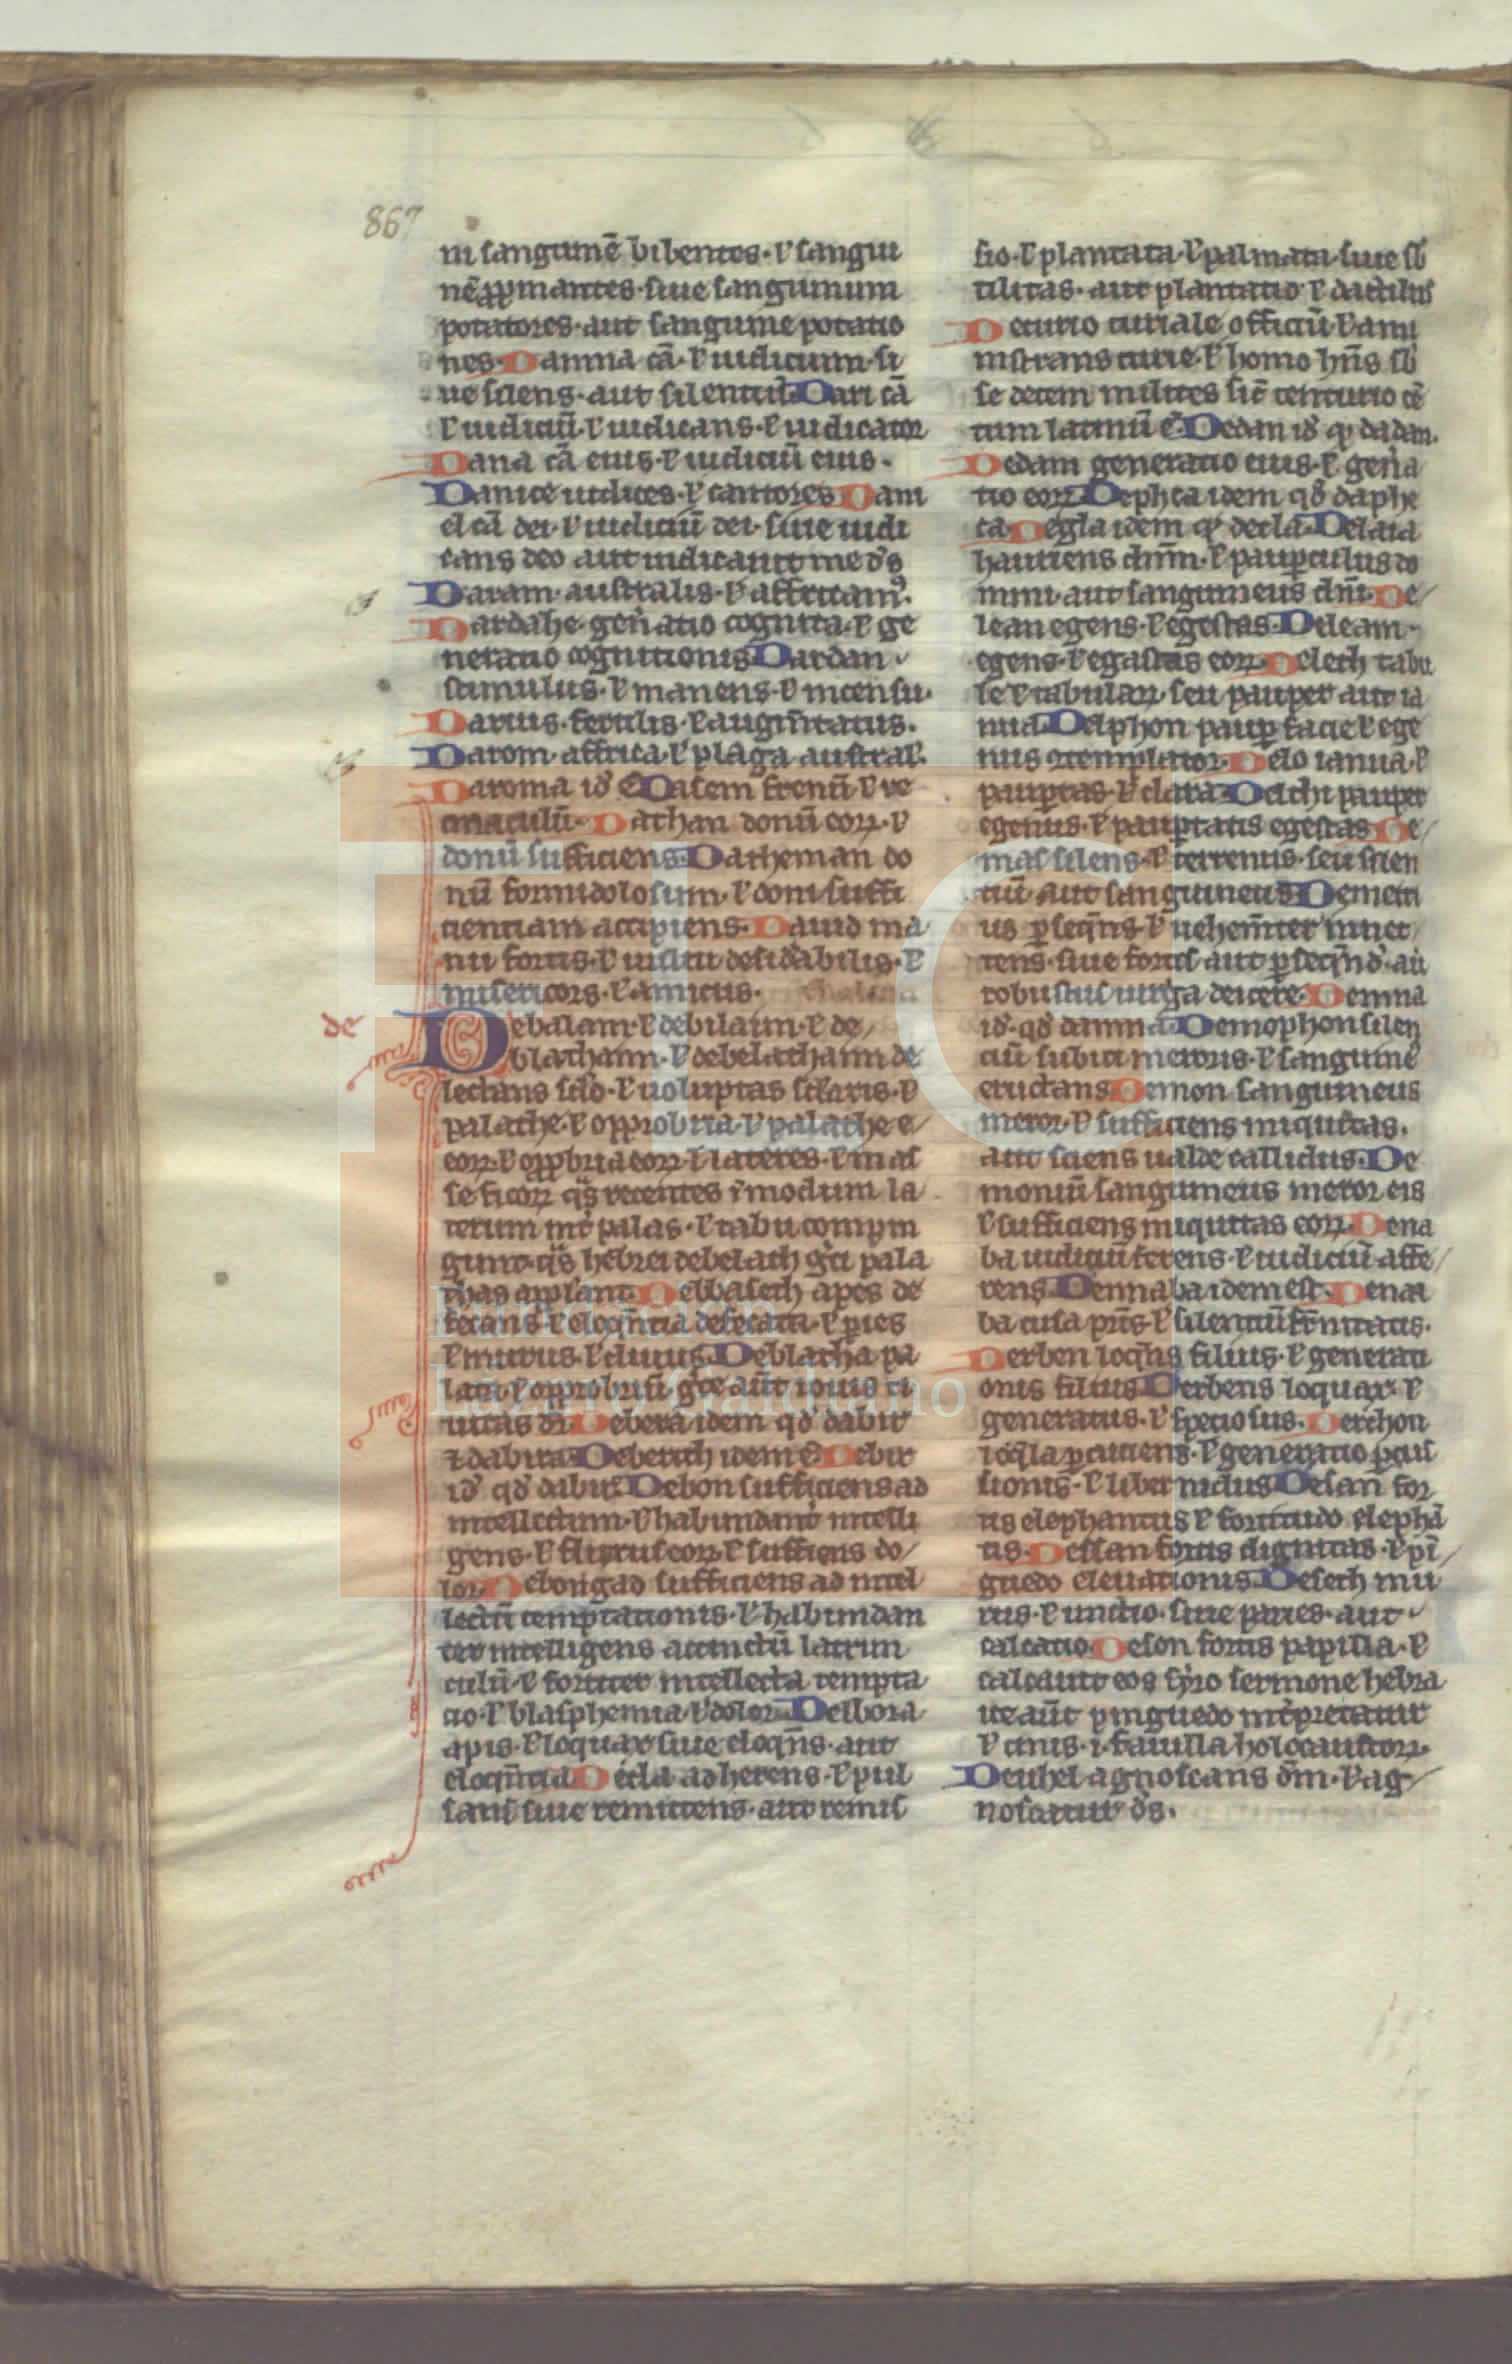 867
ni sanguinē bibentes · ł sangui
nē exp̄mantes · siue sanguinum
potatores · aut sanguine potatio
nes · Damna cā · ł iudicium · si
ue silens · aut silentiū Dan cā
ł iudiciū · ł iudicans · ł iudicator
Dana cā eius · ł iudiciū eius ·
Danice iudices · ł cantores Dani
el cā dei · ł iudiciū dei · siue iudi
cans deo aut iudicauit me ds̄
Daram · australis · ł affricanꝰ
Dardahe · gen̄atio cognita · ł ge
neratio cognitionis Dardan
stimulus · ł manens · ł incensu ·
Darius · fertilis · ł augm̄tatus ·
Darom · affrica · ł plaga austral̄ ·
Daroma id' ē Dasem frenū · ł re
tinaculū · Dathan donū eoꝝ · ł
donū sufficiens Datheman do
nū formidolosum · ł doni suffi
cientiam accipiens · Dauid ma
nu fortis · ł uisu desid'abilis · ł
misericors · ł amicus ·
de
Debalaim · ł debilaim · ł de
blathaim · ł debelathaim de
lectans · ł uoluptas · ł
palathe · ł opprobria · ł palathe e
eoꝝ · ł opp̄bria eoꝝ · ł lateres · ł mas
se ficoꝝ qs̄ recentes ī modum la
terum int' palas · ł tabu comp̄m
gunt · qs̄ hebrei debelath gc̄i pala
thas appell̄ant · Debbasech apes de
fecans · ł eloqn̄tia defecata · ł p̄ies
ł murus · ł diuus · Deblatha pa
lata · ł opprobriū gc̄e aūt iouis ci
uitas dr̄ · Debera idem qd' dabir
⁊ dabira · Deberith idem ē Debir
id' qd' dabir Debon sufficiens ad
intellectum · ł habundant' intelli
gens · ł fluxus eoꝝ · ł sufficiens do
lor · Debongad sufficiens ad intel
lectū temptationis · ł habundan
ter intelligens accinctū latrun
culū · ł fortiter intellecta tempta
tio · ł blasphemia · ł dolor · Delbora
apis · ł loquax siue eloqn̄s · aut
eloqn̄tia Decla adherens · ł pul
sans siue remittens · aut remis
sio · ł plantata · ł palmata · siue sb'
tilitas · aut plantatio ł dactilus
Decurio curiale officiū · ł ami
nistrans curie · ł homo hn̄s sb'
se decem milites sic̄ centurio cē
tum latinū ē Dedan id' qd' dadan ·
Dedam generatio eius · ł gen̄a
tio eoꝝ Dephca idem qd' daphe
ca · Degla idem qd' decla · Delaia
hauriens dn̄m · ł paup̄culus do
mini · aut sanguineus dn̄i · De
lean egens · ł egestas · Deleam
egens · ł egastas eoꝝ · Delech tabu
le ł tabulaꝝ · seu pauper aut ia
nua Delphon paup̄ facie ł ege
nus ꝯtemplator · Delo ianua · ł
paup̄tas · ł clara · Delchi pauper
egenus · ł paup̄tatis egestas De
mas silens · ł terrenus · seu silen
tiū aut sanguineus Demetri
us p̄seqn̄s · ł uehem̄ter innec
tens · siue fortis aut p̄seqn̄d' · aū
robustus uirga deicere · Demna
id' · qd' damna · Demophon silen
tiū subici meroris · ł sanguinē
eructans Demon sanguineus
meror · ł sufficiens iniquitas ·
aut sciens ualde callidus · De
moniū sanguineus meror eis
ł sufficiens iniquitas eoꝝ Dena
ba iudiciū ferens · ł iudiciū affe
rens Dennaba idem est · Denar
ba cusa · ł silentiū
Derben loqn̄s filius · ł generati
onis filius Derbens loquax · ł
generatus · ł speciosus · Derchon
loq̄la p̄cutiens · ł generatio p̄cus
sionis · ł liber nidus Desan̄ for
tis elephantus ł fortitudo elephā
tis · Dessan fortis dignitas · ł pī
guedo eleuationis Desech mu
rus · ł unctio · siue paries · aut
calcatio · Deson fortis papilla · ł
calcauit eos syro sermone hebra
ice aūt pinguedo int'pretatur
ł cinis · i · fauilla holocaustoꝝ ·
Deuhel agnoscans dm̄ · ł ag
noscatur ds̄ ·
FLG
Fundación
Lázaro Galdiano